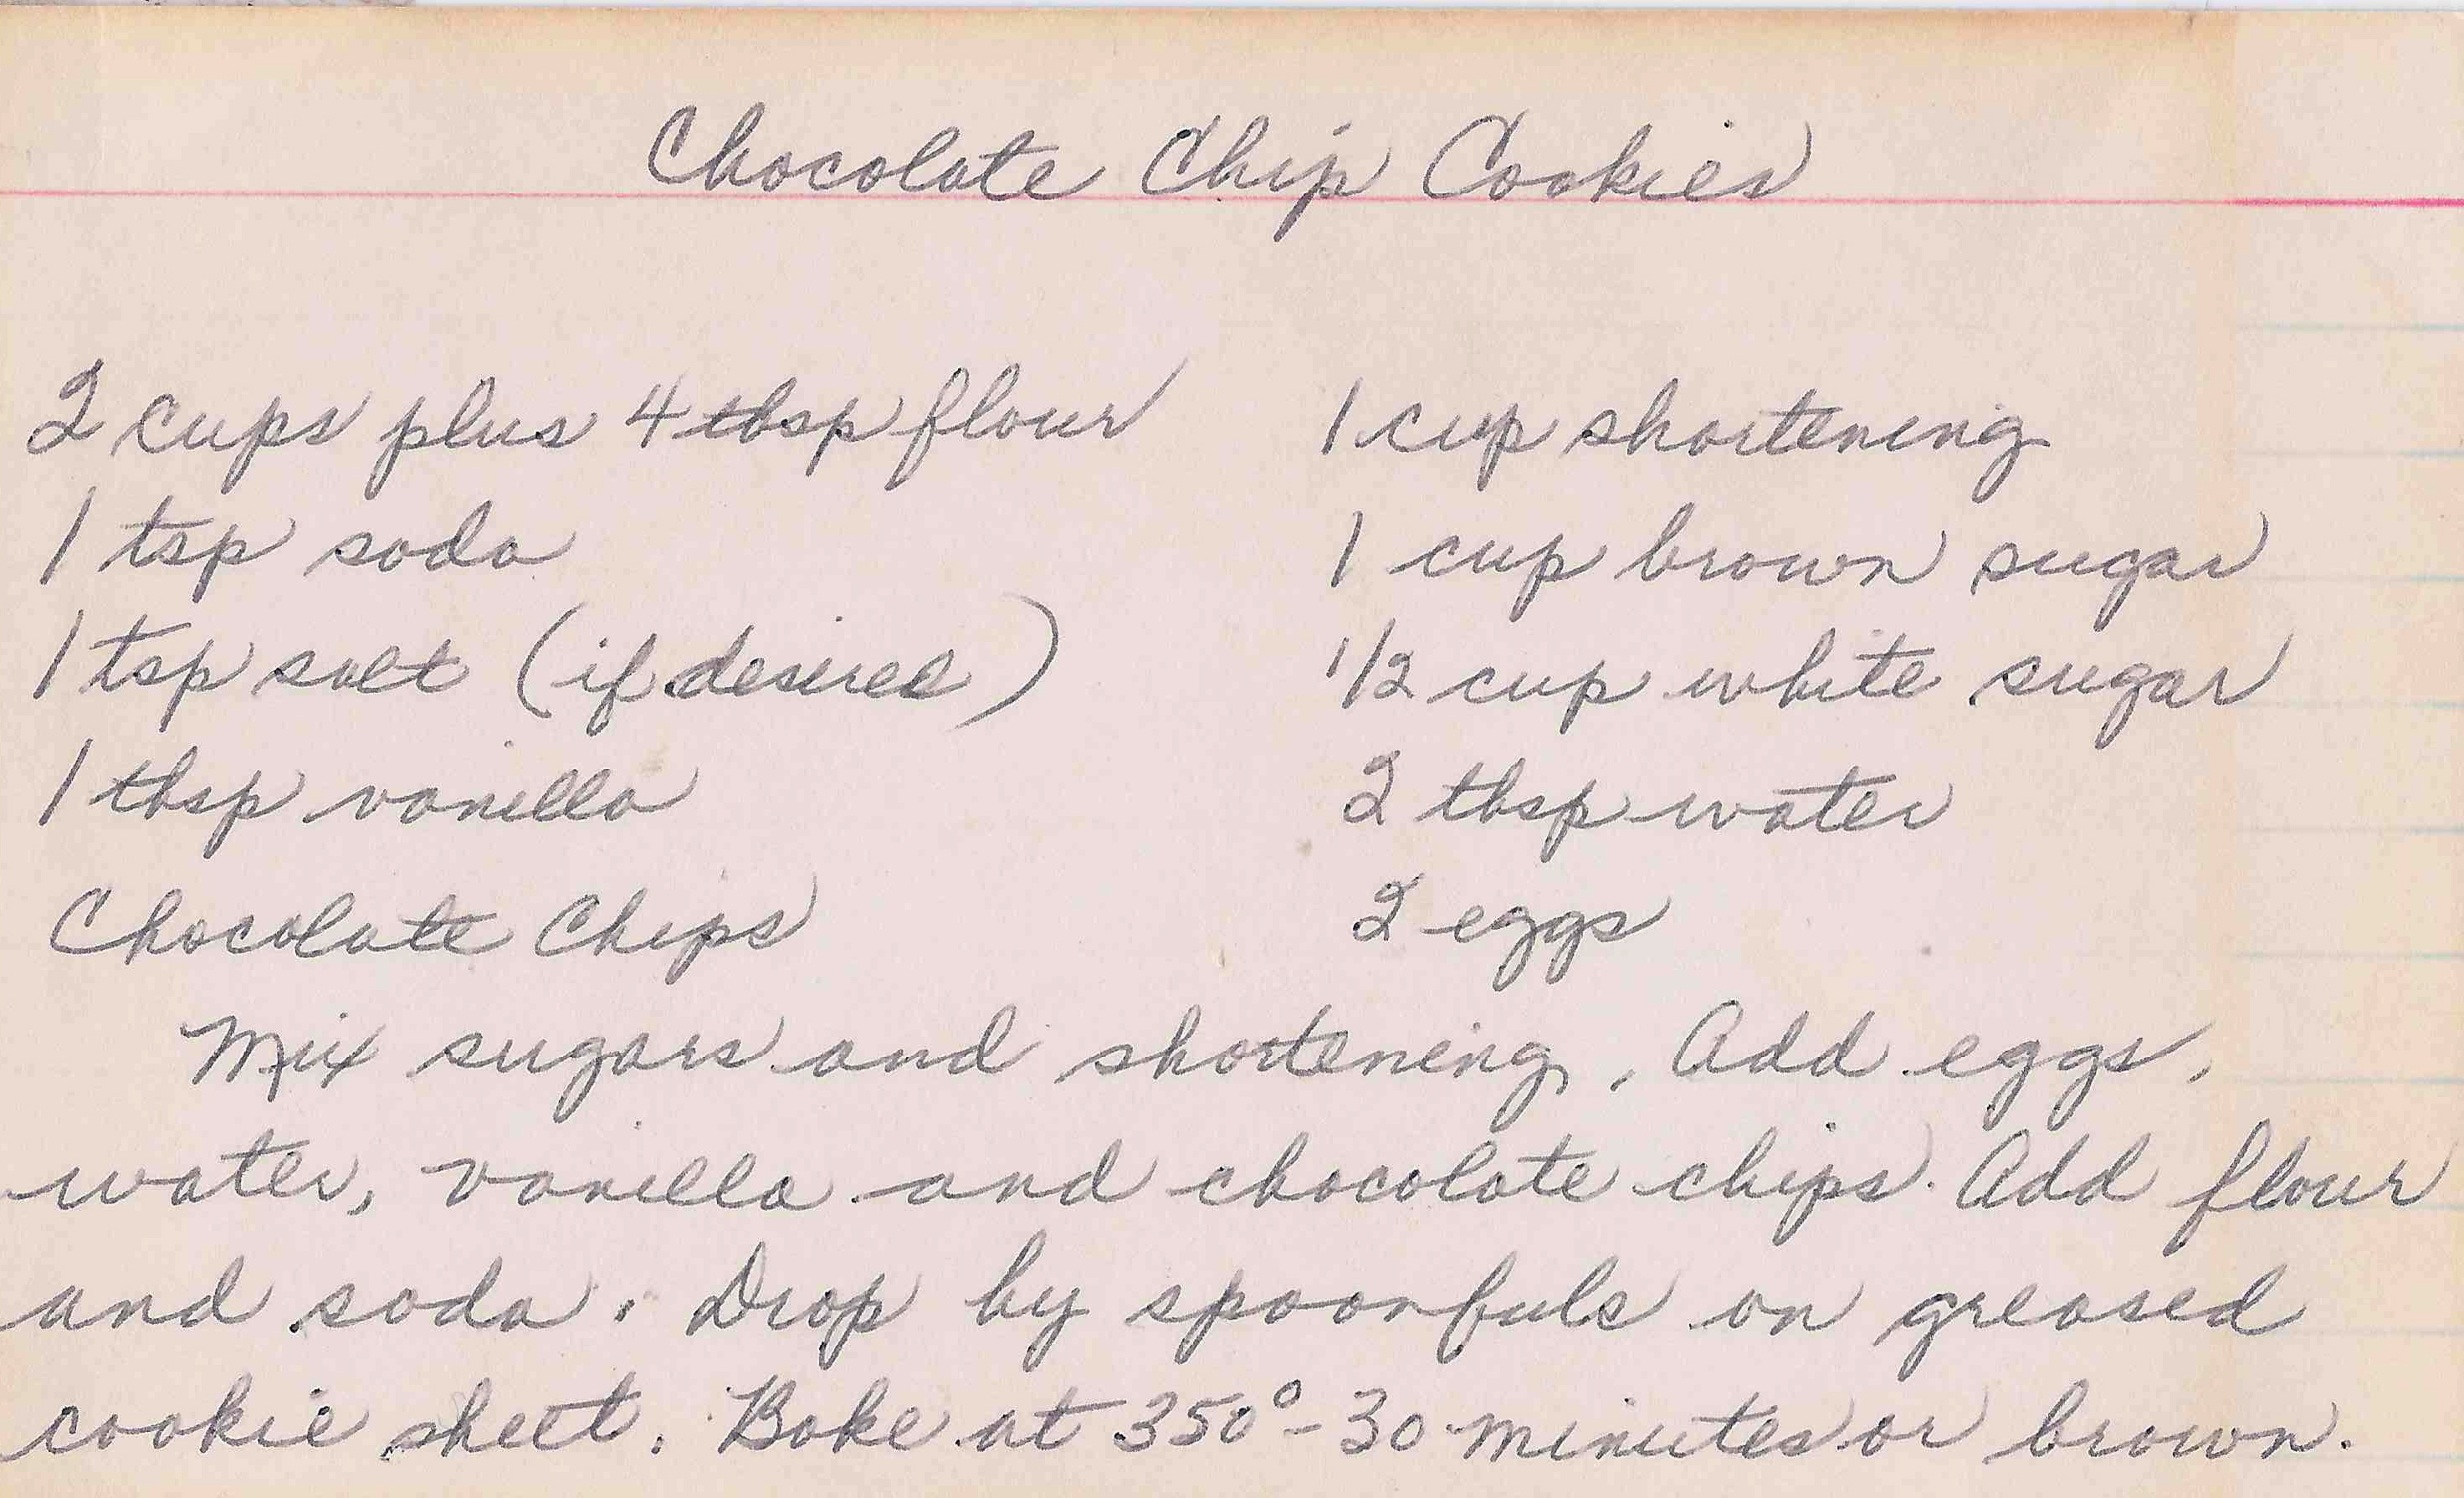 Chocolate Chip Cookies
2 cups plus 4 tbsp flour
1 tsp soda
1 tsp salt (if desired)
1 tbsp vanilla
Chocolate Chips
1 cup shortening
1 cup brown sugar
1/2 cup white sugar
2 tbsp water
2 eggs
Mix sugars and shortening. Add eggs,
water, vanilla and chocolate chips. Add flour
and soda. Drop by spoonfuls on greased
cookie sheet. Bake at 350° - 30 minutes or brown.